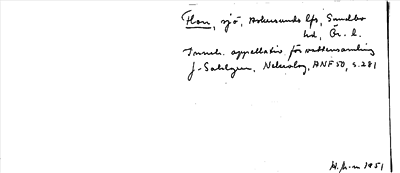 Flon, sjö, Askersunds lfs, Sundbo
hd, Ör. l.
Inneh. appellativ för vattensamling
J. Sahlgren, ANF 50, s. 281
1951